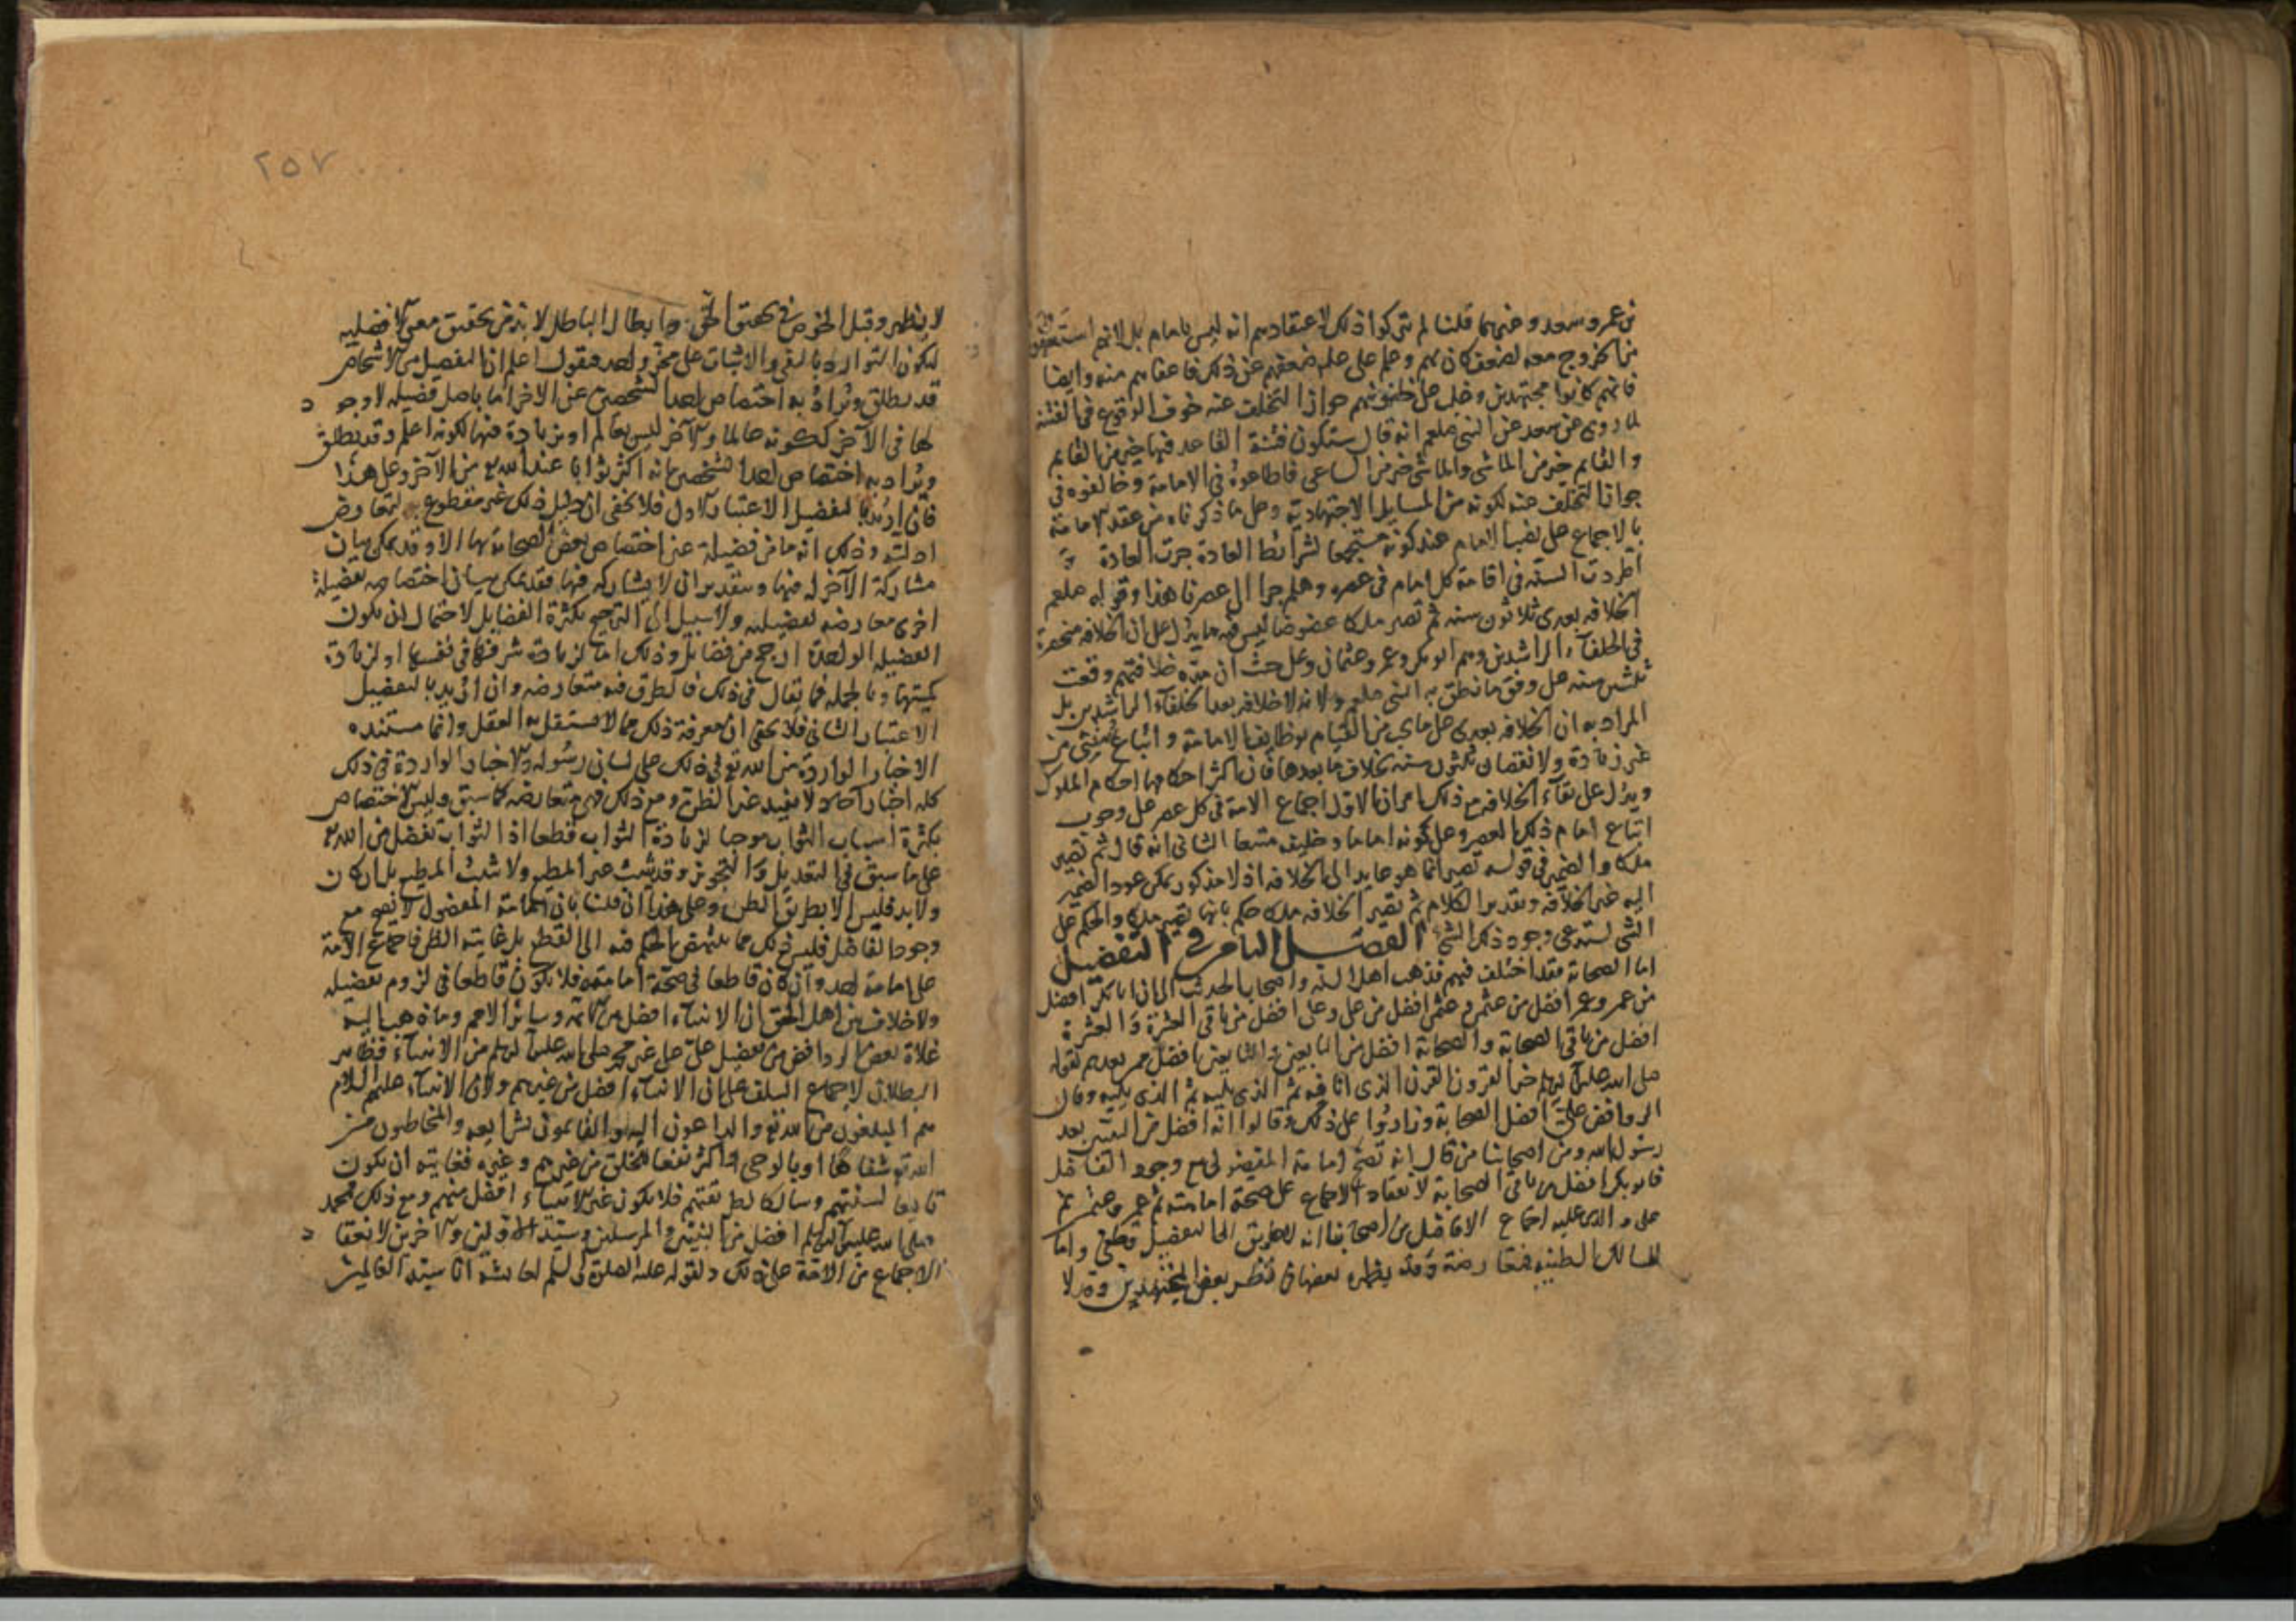 بن عمر وسعد وغيرهما قلنا لم يتركوا ذلك لاعتقادهم انه ليس بامام بل لانهم استعفوه
من الخروج معه لضعف كان بهم وعلم علي عليه ضعفهم عن ذلك فاعفاهم منه وايضا
فانهم كانوا مجتهدين وغلب على ظنونهم جواز التخلف عنه خوف الوقوع في الفتنة
لما روى عن سعد عن النبي صلعم انه قال ستكون فتنة القاعد فيها خير من القايم
والقايم خير من الماشي والماشي خير من الساعي فاطاعوه في الامامة وخالفوه في
جواز التخلف عنه لكونه من المسايل الاجتهادية وعلى ما ذكرناه من عقد الامامة
بالاجماع على نصب الامام عند كونه مستجمعا لشرائط العادة جرت العادة
اطردت السنة في اقامة كل امام في عصره وهلم جرا الى عصرنا هذا وقوله صلعم
الخلافه بعدى ثلاثون سنه ثم تصير ملكا عضوضا ليس فيه ما يدل على ان الخلافه منحصرة
في الخلفآء الراشدين وهم ابو بكر وعمر وعثمان وعلى حيث ان مدة خلافتهم وقعت
ثلثين سنه على وفق ما نطق به النبي صلعم ولا انه لا خلافه بعد الخلفآء الراشدين بل
المراد به ان الخلافه بعدى على ما يجب من القيام بوظايف الامامة واتباع سنتي من
غير زيادة ولا نقصان ثلثون سنه بخلاف ما بعدها فان اكثر احكامها احكام الملوك
ويدل على بقآء الخلافه مع ذلك امران الاول اجماع الامة في كل عصر على وجوب
اتباع امام ذلك العصر وعلى كونه اماما وخليفه متبعا الثاني انه قال ثم تصير
ملكا والضمير في قوله تصير انما هو عايد الى الخلافه اذ لا مذكور يمكن عود الضمير
اليه غير الخلافه وتقدير الكلام ثم تصير الخلافه ملكا حكم بانها تصير ملكا والحكم على
الشي يستدعي وجود ذلك الشي الفصل الثامن في التفضيل
اما الصحابة فقد اختلف فيهم فذهب اهل السنه واصحاب الحديث الى ان ابا بكر افضل
من عمر وعمر افضل من عثمن وعثمن افضل من علي وعلى افضل من باقي العشرة والعشرة
افضل من باقي الصحابة والصحابة افضل من التابعين والتابعين افضل ممن بعدهم لقوله
صلى الله عليه وسلم خير القرون القرن الذي انا فيه ثم الذي يليه ثم الذي يليه وقال
الروافض علي افضل الصحابة وزادوا على ذلك وقالوا انه افضل من البشر بعد
رسول الله ومن اصحابنا من قال انه تصح امامة المفضول مع وجود الفاضل
فابو بكر افضل من باقي الصحابة لانعقاد الاجماع على صحة امامته ثم عمر وعثمن ثم
علي والذي عليه اجماع الافاضل من اصحابنا انه لا طريق الى التفضيل قطعي واما
المسالك الظنيه فمتعارضة وقد يظهر بعضها في نظر بعض المجتهدين وقد لا
٢٥٧
لا يظهر وقبل الخوض في تحقيق الحق وابطال الباطل لا بد من تحقيق معنى الافضليه
ليكون التوارد بالنفي والاثبات على محز واحد فنقول اعلم ان التفضيل من الاشخاص
قد يطلق ويراد به اختصاص احد الشخصين عن الاخر اما باصل فضيله لا وجود
لها في الآخر لكونه عالما والآخر ليس بعالم او بزيادة فيها لكونه اعلم وقد يطلق
ويراد به اختصاص احد الشخصين بانه اكثر ثوابا عند الله تع من الآخر وعلى هذا
فان اريد بالتفضيل الاعتبار الاول فلا يخفى ان دليل ذلك غير مقطوع به لتعارض
ادلته وذلك انه ما من فضيلة عن اختصاص بعض الصحابة بها الا وقد يمكن بيان
مشاركة الآخر له فيها وبتقدير ان لا يشاركه فيها فقد يمكن بيان اختصاصه بفضيلة
اخرى معارضه لفضيلته ولا سبيل الى الترجيح بكثرة الفضايل لاحتمال ان يكون
الفضيله الواحدة ارجح من فضائل وذلك اما لزيادة شرفها في نفسها او لزيادة
كميتها وبالجمله فما يقال في ذلك فالطرق فيه متعارضه وان اريد بالتفضيل
الاعتبار الثاني فلا يخفى ان معرفة ذلك مما لا يستقل به العقل وانما مستنده
الاخبار الواردة من الله تع في ذلك على لسان رسوله والاخبار الواردة في ذلك
كله اخبار آحاد لا تفيد غير الظن ومع ذلك فهي متعارضه كما سبق وليس الاختصاص
بكثرة اسباب الثواب موجبا لزيادة الثواب قطعا اذ الثواب تفضل من الله تع
على ما سبق في التعديل والتجويز وقد يثيب غير المطيع ولا يثيب المطيع بل ان كان
ولا بد فليس الا بطريق الظن وعلى هذا ان قلنا بان امامة المفضول لا تصح مع
وجود الفاضل فليس ذلك مما ينتهض الحكم فيه الى القطع بل غايته الظن فاجماع الامة
على امامة احد وان كان قاطعا في صحة امامته فلا يكون قاطعا في لزوم تفضيله
ولا خلاف بين اهل الحق ان الانبيآء افضل من وسائر الامم وما ذهب اليه
غلاة بعض الروافض من تفضيل علي على غير محمد صلى الله عليه وسلم من الانبيآء فظاهر
البطلان لاجماع السلف على ان الانبيآء افضل من غيرهم ولان الانبيآء عليهم السلام
هم المبلغون من الله تع والداعون اليه والقايمون بشرايعه والمخاطبون من
الله تع شفاها او بالوحي اذ اكثر نفعا للخلق من غيرهم وغيره فغايته ان يكون
تابعا لسنتهم وسالكا لطريقتهم فلا يكون غير الانبيآء افضل منهم ومع ذلك فمحمد
صلى الله عليه وسلم افضل من النبيين والمرسلين وسيد الاولين والاخرين لانعقاد
الاجماع من الامة على ذلك ولقوله عليه الصلوة والسلم لعائشه انا سيد العالمين